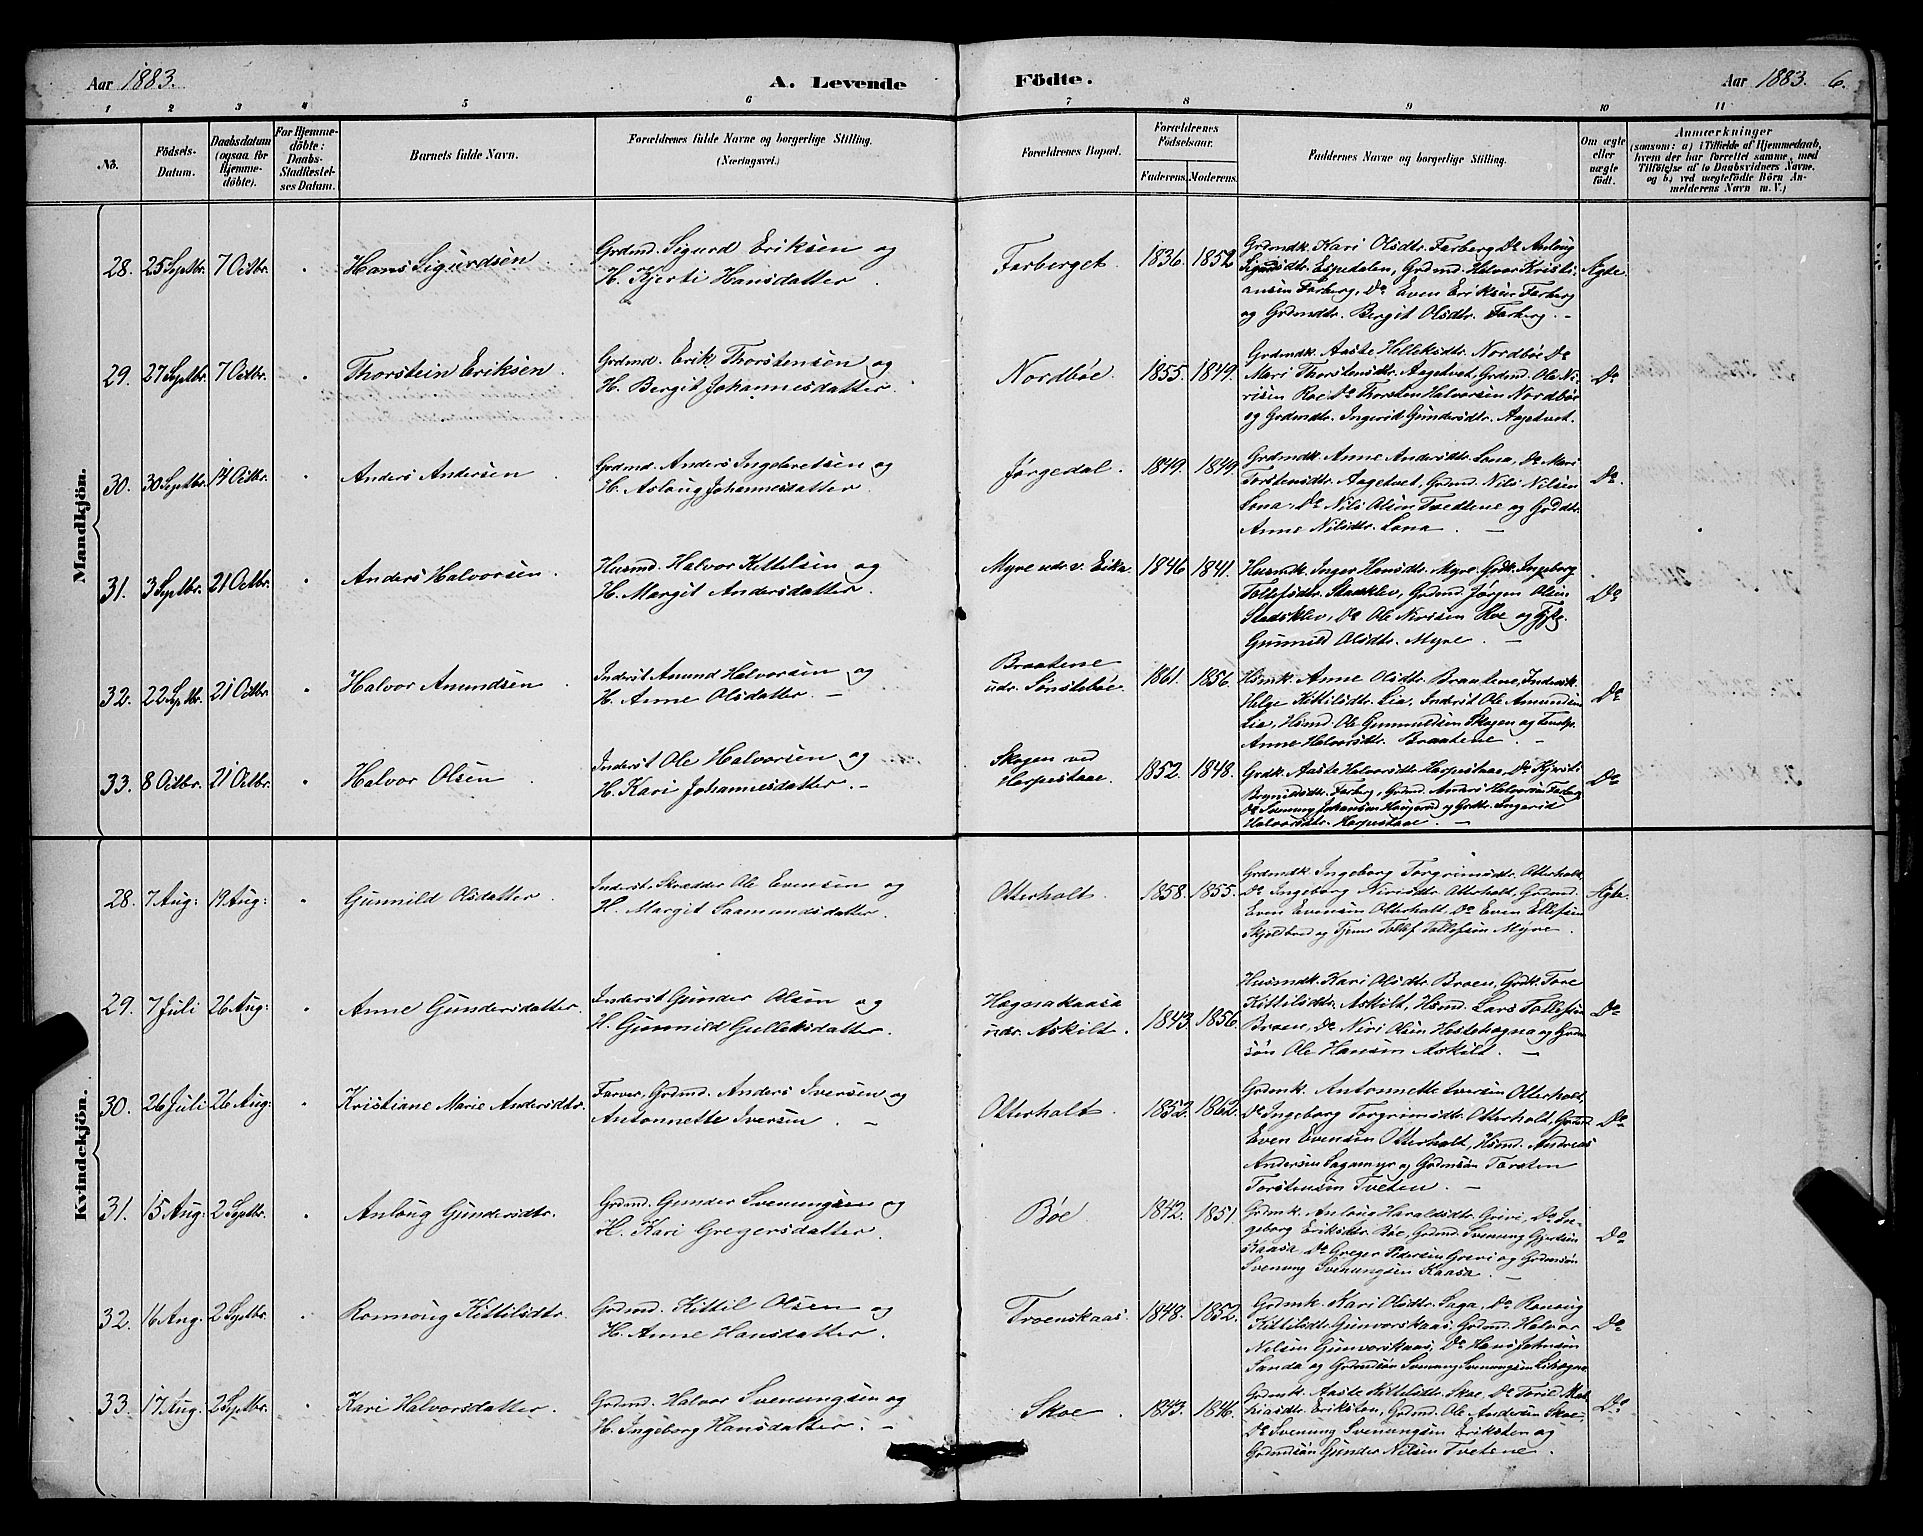 Aar 1883.
A. Levende Födte.
Aar 1883. 6.
1 2 3 4 5 6 7 8 9 10 11
No.
Födsels-
Datum.
Daabsdatum
(ogsaa for
Hjemme-
döbte).
For Hjemme-
döbte:
Daabs-
Stadfæstel-
ses Datum.
Barnets fulde Navn.
Forældrenes fulde Navne og borgerlige Stilling.
(Næringsvei.)
Forældrenes Bopæl.
Forældrenes
Födselsaar.
Faderens. Moderens.
Faddernes Navne og borgerlige Stilling.
Om ægte
eller
uægte
födt.
Anmærkninger
(saasom: a) i Tilfælde af Hjemmedaab,
hvem der har forrettet samme, med
Tilföielse af to Daabsvidners Navne.
og b) ved uægtefödte Börn An-
melderens Navn m. V.)
Mandkjön.
28. 25 Septbr. 7 Octbr. " Hans Sigurdsen
Grdmd. Sigurd Eriksen og
H. Kjersti Hansdatter.
Farberget. 1836. 1852
Grdmdk. Kari Olsdtr. Farberg, Do Anlaug
Sigurdsdtr. Espedalen, Grdmd. Halvor Kristi-
ansen Farberg, Do Even Eriksen Farberg
og Grdmdtr. Bergit Olsdtr. Farberg. -
Ægte
29. 27 Septbr. 7 Octbr. " Thorstein Eriksen.
Grdmd. Erik Thorstensen og
H. Bergit Johannesdatter.
Nordböe. 1855. 1849.
Grdmdk. Aaste Helleksdtr. Nordböe Do
Mari Thorstensdtr. Aagetvet, Grdmd. Ole Ni-
risen Roe Do Thorsten Halvorsen Nordböe
og Grdmdtr. Ingerid Gundersdtr. Aagetvet.
Do
30. 30 Septbr. 14 Octbr. " Anders Andersen
Grdmd. Anders Ingebretsen og
H. Aslaug Johannesdatter.
Jörgedal. 1849. 1849
Grdmdk. Anne Andersdtr. Lona, Do Mari
Torstensdtr. Aagetvet, Grdmd. Nils Nilsen
Lona, Do Nils Olsen Tvedtene og Grddtr.
Anne Nilsdtr. Lona. -
Do.
31. 3 Septbr. 21 Octbr. " Anders Halvorsen.
Husmd. Halvor Kittelsen og
H. Margit Andersdatter.
Myre udr. v. Eika. 1846 1841.
Husmdk. Inger Hansdtr. Myre, Grdk. Ingeborg
Tollefsdtr. Stadsklev, Grdmd. Jörgen Olsen
Stadsklev, Do Ole Nirisen Roe og
Gunnild Olsdtr. Myre. -
Do
32. 22 Septbr. 21 Octbr. " Halvor Amundsen
Inderst Amund Halvorsen og
H. Anne Olsdatter. -
Braatene
udr. Sönsteböe. 1861. 1856.
Hsmdk. Anne Olsdtr. Braatene, Inderstk.
Helge Kittilsdtr. Lia, Inderst Ole Amundsen
Lia, Hsmd. Ole Gunnuldsen Skogen og
Anne Halvorsdtr. Braatene. -
Do
33. 8 Octbr. 21 Octbr. " Halvor Olsen
Inderst Ole Halvorsen og
H. Kari Johannesdatter. -
Skogen ved
Herpestaae. 1852. 1848.
Grdk. Aaste Halvorsdtr. Herpestaae, Do Kjersti
Brynildsdtr. Farberg, Grdmd. Anders Halvorsen Farberg
Do Svenung Johansen Haugerud og Grdtr. Ingerid
Halvorsdtr. Herpestaae. -
Do
Kvindekjön.
28. 7 Aug: 19 Aug: " Gunnild Olsdatter.
Inderst, Skrædder Ole Evensen og
H. Margit Saamundsdatter.
Otterholt. 1858. 1855.
Grdmdk Ingeborg Torgrimsdtr. Otterholt,
Do Ingeborg Nirisdtr. Otterholt, Grdmd.
Even Evensen Otterholt, Do Even Ellefsen
Skjelbred og Tjener Tollef Tollefsen Myre.
Ægte.
29. 7 Juli 26 Aug: " Anne Gundersdatter.
Inderst Gunder Olsen og
H. Gunnild Gulleksdatter.
Hagnakaasa
udr. Askilt. 1843. 1856.
Husmdk. Kari Olsdtr. Broen, Grdk. Tore
Kittilsdtr. Askilt, Hsmd. Lars Tollefsen
Broen, Do Niri Olsen Hestehagna og Grdm-
sön Ole Hansen Askilt. -
Do
30. 26 Juli 26 Aug: " Kristiane Marie Andersdtr.
Farver, Grdmd. Anders Iversen og
Antonnette Iversen. -
Otterholt. 1852. 1862.
Grdmk. Antonnette Iversen Otterholt,
Do Ingeborg Torgrimsdtr. Otterholt, Grdmd.
Even Evensön Otterholt, Hsmd. Andreas
Andersen Sagamyr og Grdmsön Torsten
Torstensen Tveten. -
Do
31. 15 Aug: 2 Septbr. " Anlaug Gundersdtr.
Grdmd. Gunder Svenungsen og
H. Kari Gregersdatter.
Böe 1842. 1851.
Grdmk. Anlaug Haraldsdtr. Grivi, Do In-
geborg Eriksdtr. Böe, Grdmd. Svenung Gjertsen
Kaasa, Do Greger Pedersen Grevi og Grdmsön
Svenung Svenungsen Kaasa. -
Do
32. 16 Aug. 2 Septbr. " Ronnoug Kittilsdtr.
Grdmd. Kittil Olsen og
H. Anne Hansdatter.
Troenskaas. 1848. 1852.
Grdmk. Kari Olsdtr. Saga, Do Ronoug
Kittilsdtr. Gunvorskaas, Grdmd. Halvor
Nilsen Gunvorskaas, Do Hans Johnsön
Sanda og Grdmsön Svenung Svenungsen
Do
33. 17 Aug. 2 Septbr. " Kari Halvorsdatter.
Grdmd. Halvor Svenungsen og
H. Ingeborg Hansdatter. -
Skoe. 1843. 1846.
Grdmk. Aaste Kittilsdtr. Skoe, Do Toril Mat-
hiasdtr. Eriksten, Grdmd. Ole Andersen Skoe,
Do Svenung Svenungsen Eriksten og
Grdmdsön Gunder Nilsen Tvetene.
Do